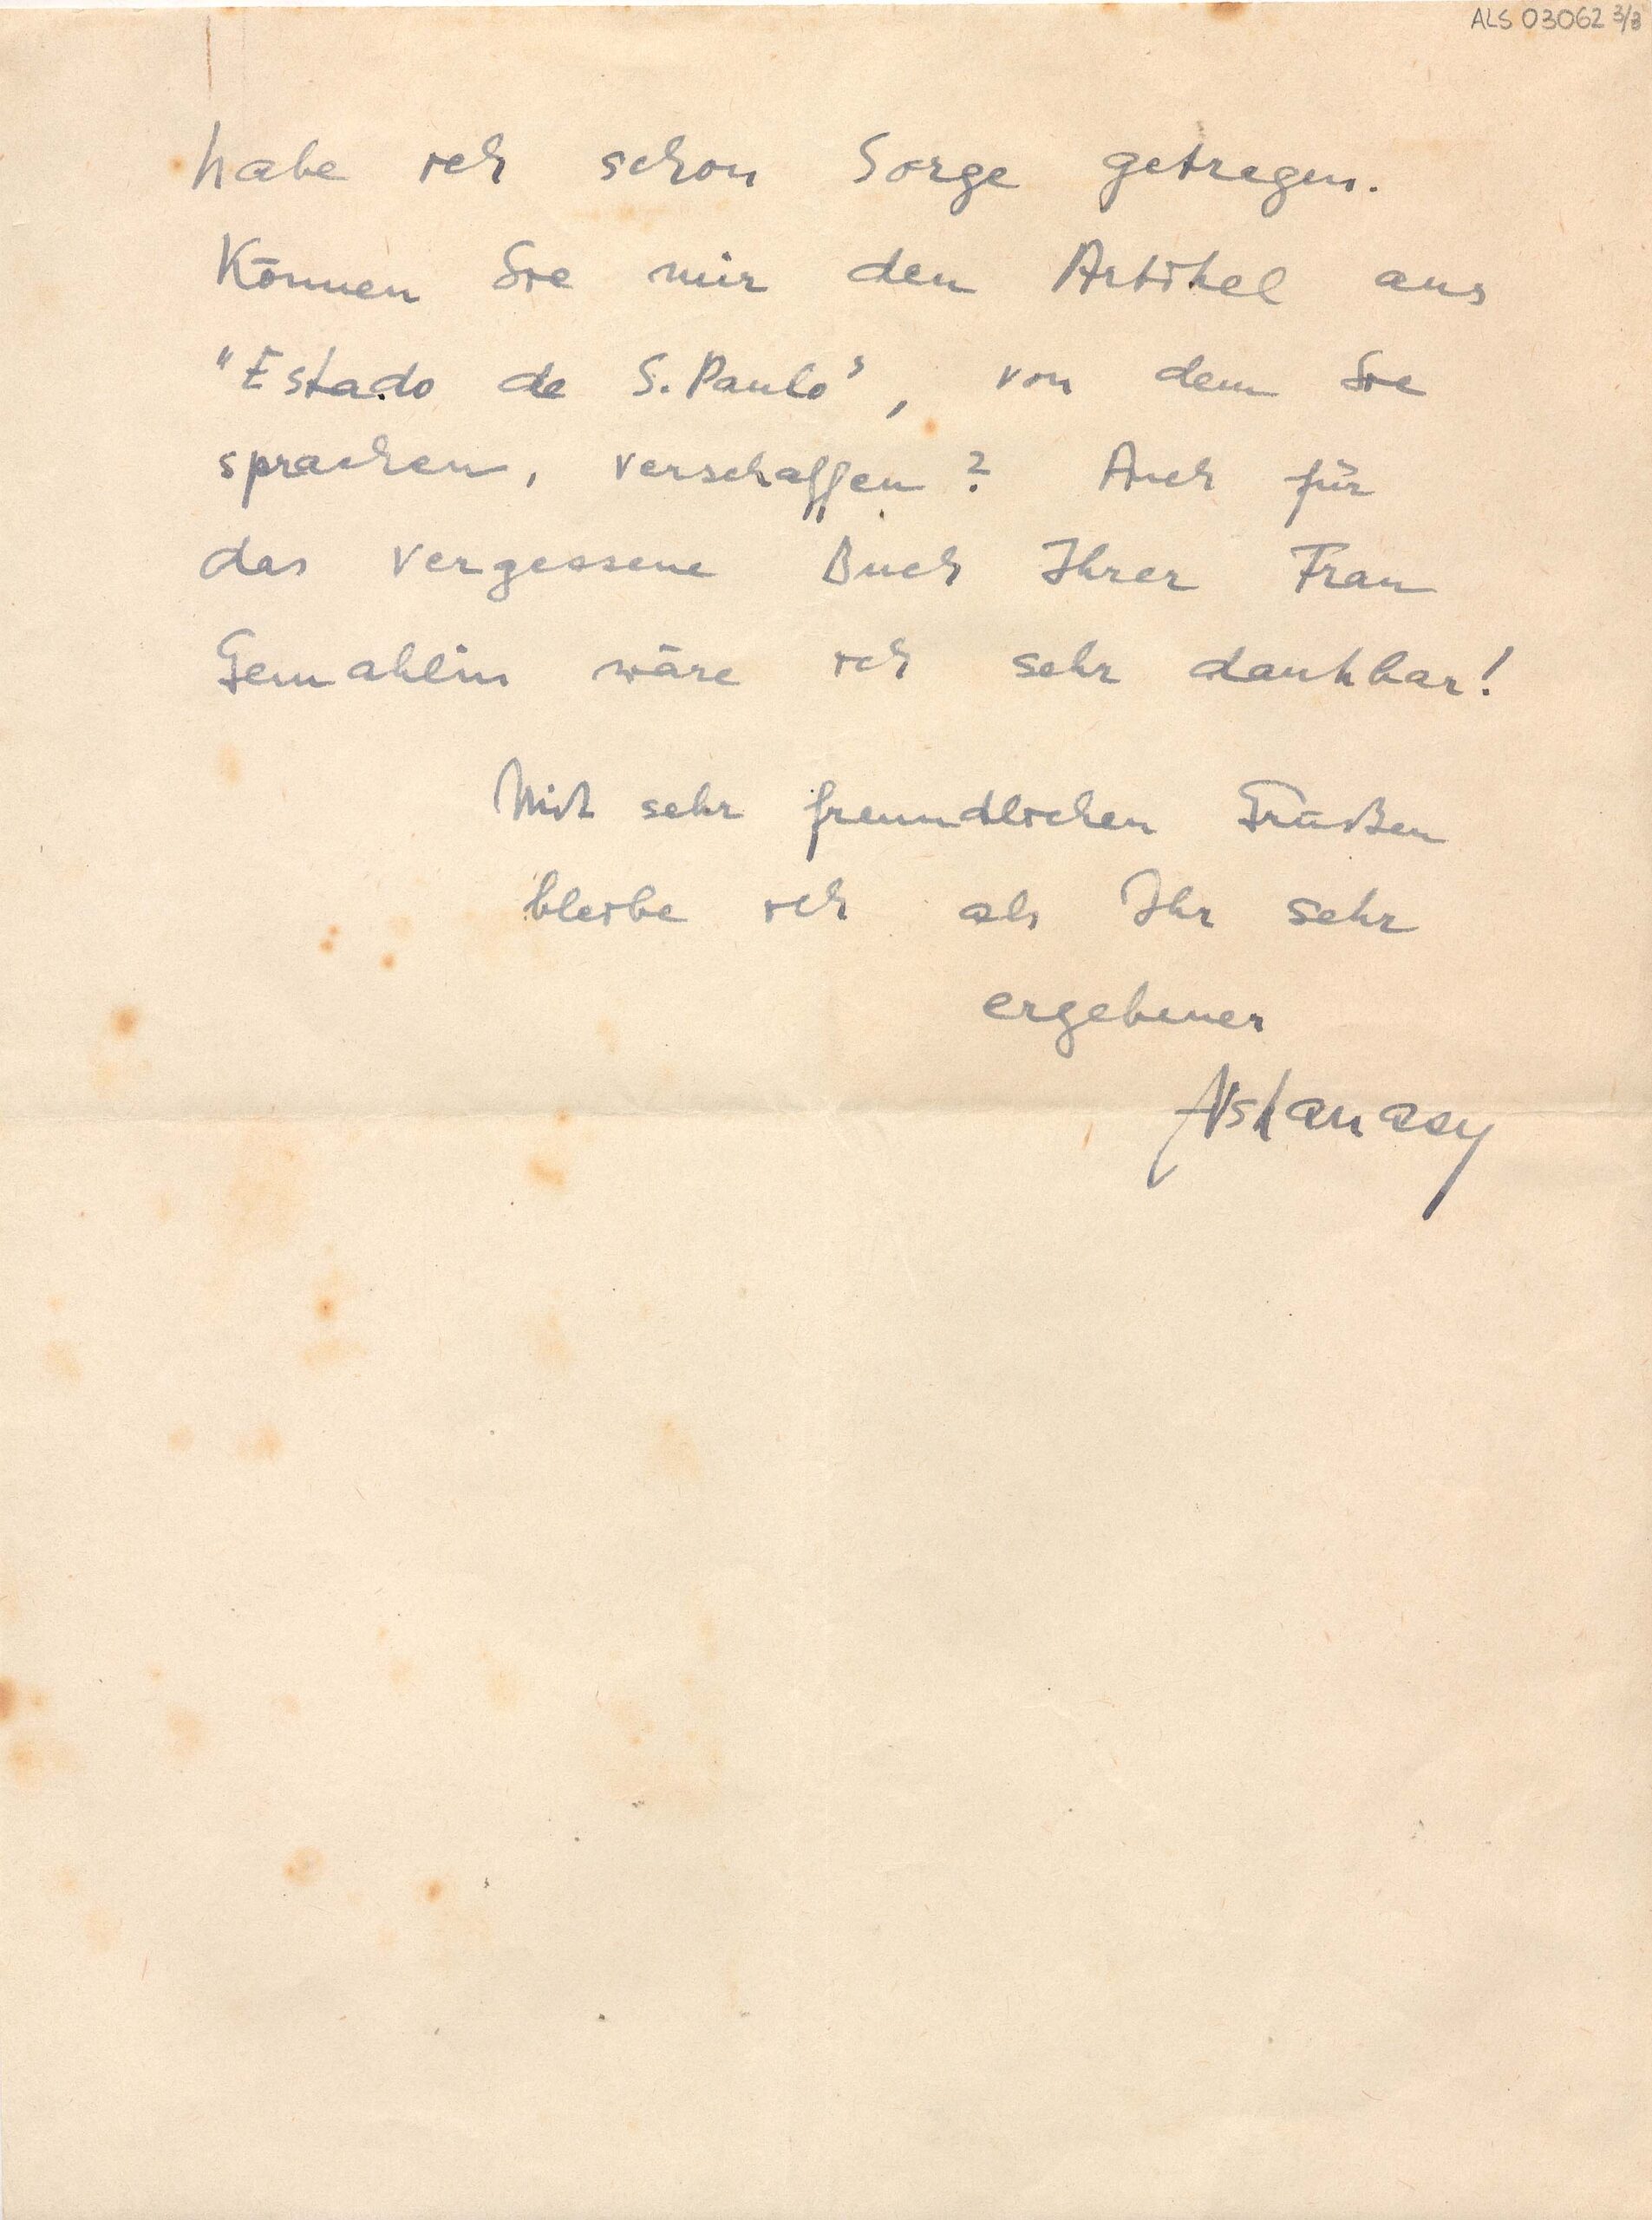 ALS 03062 3/3
habe ich schon Sorge getragen.
Können Sie mir den Artikel aus
"Estado de S. Paulo", von dem Sie
sprachen, verschaffen? Auch für
das vergessene Buch Ihrer Frau
Gemahlin wäre ich sehr dankbar!
Mit sehr freundlichen Grüßen
bleibe ich als Ihr sehr
ergebener